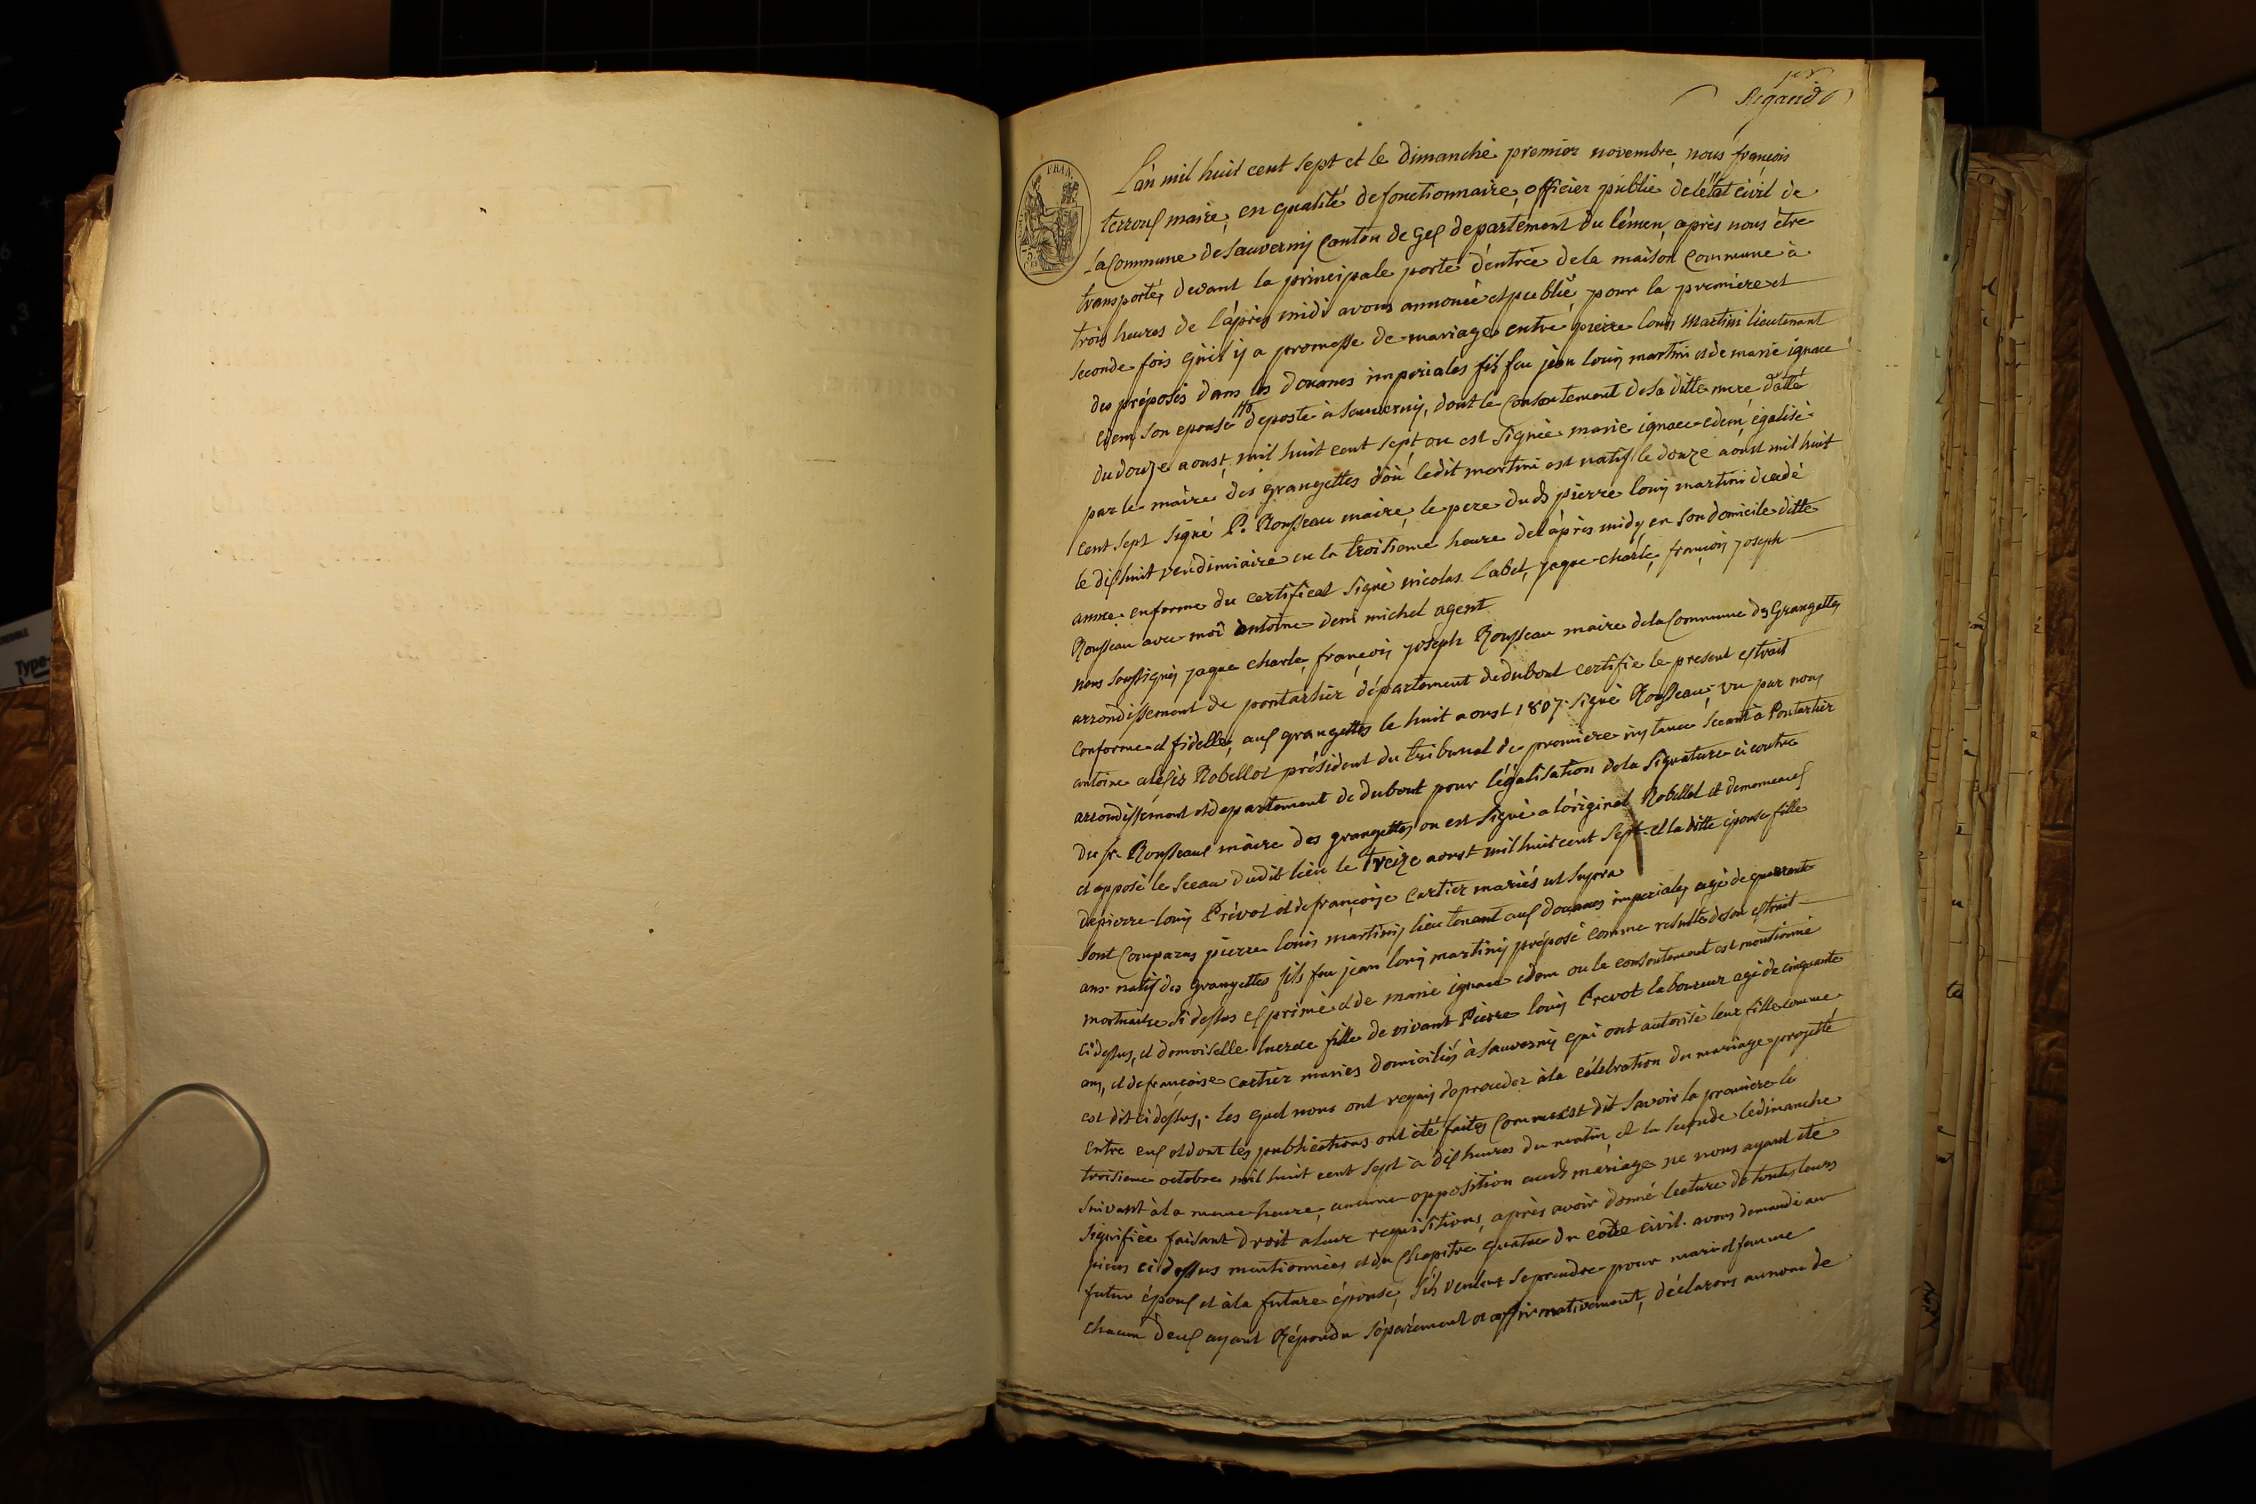 1er
Rigaud
FRAN
L'an mil huit cent sept et le dimanche premier novembre, nous françois
terroux maire, en qualité de fonctionnaire, officier public de létat civil de
la Commune de Sauverny Canton de Gex departement du léman, après nous être
transportés devant la principale porte d'entrée de la maison Commune à
trois heures de l'après midi avons annoncé et publié, pour la premiere et
seconde fois qu'il y a promesse de mariage entre pierre louis Martini lieutenant
des préposés dans les douanes imperiales fils feu jean louis martini et de marie ignace
edem son epouse de poste à Sauverny, dont le Consentement de sa ditte mere datté
du douze aoust, mil huit cent sept, ou est signée marie ignace edem, égalisé
par le maire des grangettes d'où ledit martini est natif le douze aoust mil huit
cent sept signé P. Rousseau maire, le pere dud pierre louis martini décédé
le dixhuit vendimiaire en la troisieme heure de l'après midy en son domicile ditte
année en forme du certificat signé nicolas Labet, jaque charle, françois joseph
Rousseau avec moi antoine deni michel agent
nous soussignés jaque charle, françois joseph Rousseau maire de la Commune des Grangettes
arrondissement de pontarlier département dedubout certifie le present extrait
conforme et fidelle, aux grangettes le huit aoust 1807 signé Rousseau, vu par nous
antoine alexis Robellot président du tribunal de premiere instance séeant à Pontarlier
arrondissement et departement de dubout pour légalisation de la signature ci contre
du sr Rousseaux maire des grangettes ou est signé a l'original Robellot et
et apposé le sceau dudit lieu le treize aoust mil huit cent sept et la ditte épouse fille
de pierre louis Prévot et de françoise Cartier mariés ut supra
Sont Comparus pierre louis martini, lieutenant aux douanes imperiales agé de quarante
ans natif des grangettes fils feu jean louis martini préposé comme resulte de son extrait
mortuaire ci dessus exprimé et de marie ignace edem ou le consentement est mentionné
ci dessus, et demoiselle lucrece fille de vivant Pierre louis Prevot laboureur agé de cinquante
ans, et de françoise Cartier mariés domiciliés à Sauverny qui ont autorisé leur fille comme
est dit ci dessus, les quel nous ont requis de proceder à la célébration du mariage projetté
entre eux et dont les publications ont été faites comme est dit savoir la premiere le
troisieme octobre mil huit cent sept à dix heures du matin, et la seconde le dimanche
suivant à la meme heure, aucune opposition aud mariage ne nous ayant été
signifiée faisant droit a leur requisitions, après avoir donné lecture de toutes leurs
pieces ci dessus mentionnées et du Chapitre quatre du code civil. avons demandé au
futur époux et à la future épouse, s'ils veulent se prendre pour mari et femme
chacun d'eux ayant Répondu séparément et affirmativement, déclarons au nom de